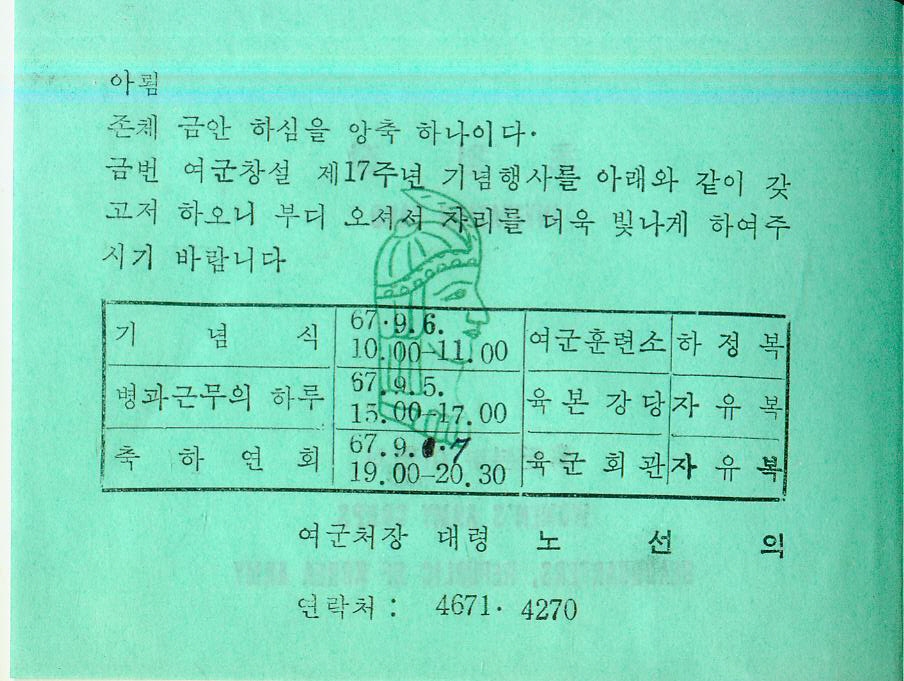 아룀
존체 금안 하심을 앙축 하나이다.
금번 여군창설 제17주년 기념행사를 아래와 같이 갖
고저 하오니 부디 오셔서 자리를 더욱 빛나게 하여주
시기 바람니다
기 념 식 67.9.6. 10.00-11.00 여군훈련소 하 정 복
병과근무의 하루 67.9.5. 15.00-17.00 육 본 강 당 자 유 복
축 하 연 회 67.9.7 19.00-20.30 육 군 회 관 자 유 복
여군처장 대령 노 선 의
연락처 : 4671. 4270
WOMEN'S ARMY CORPS
HEADQUARTERS, REPUBLIC OF KOREA ARMY